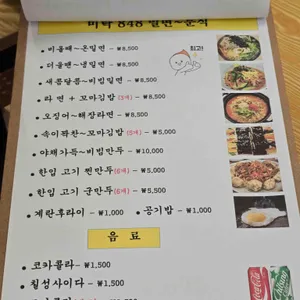 미락 848 밀면~분식
• 비올때~온밀면 - ₩8,500
최고!
• 더울땐~냉밀면 - ₩8,500
• 새콤달콤~비빔밀면 - ₩8,500
• 라면 + 꼬마김밥(3개) - ₩8,500
• 오징어~해장라면 - ₩8,500
• 속이꽉찬~꼬마김밥(6개) - ₩5,000
• 야채가득~비빔만두 - ₩10,000
• 한입 고기 찐만두(6개) - ₩5,000
• 한입 고기 군만두(6개) - ₩5,000
• 계란후라이 - ₩1,000 • 공기밥 - ₩1,000
음 료
• 코카콜라 - ₩1,500
• 칠성사이다 - ₩1,500
Coca-Cola